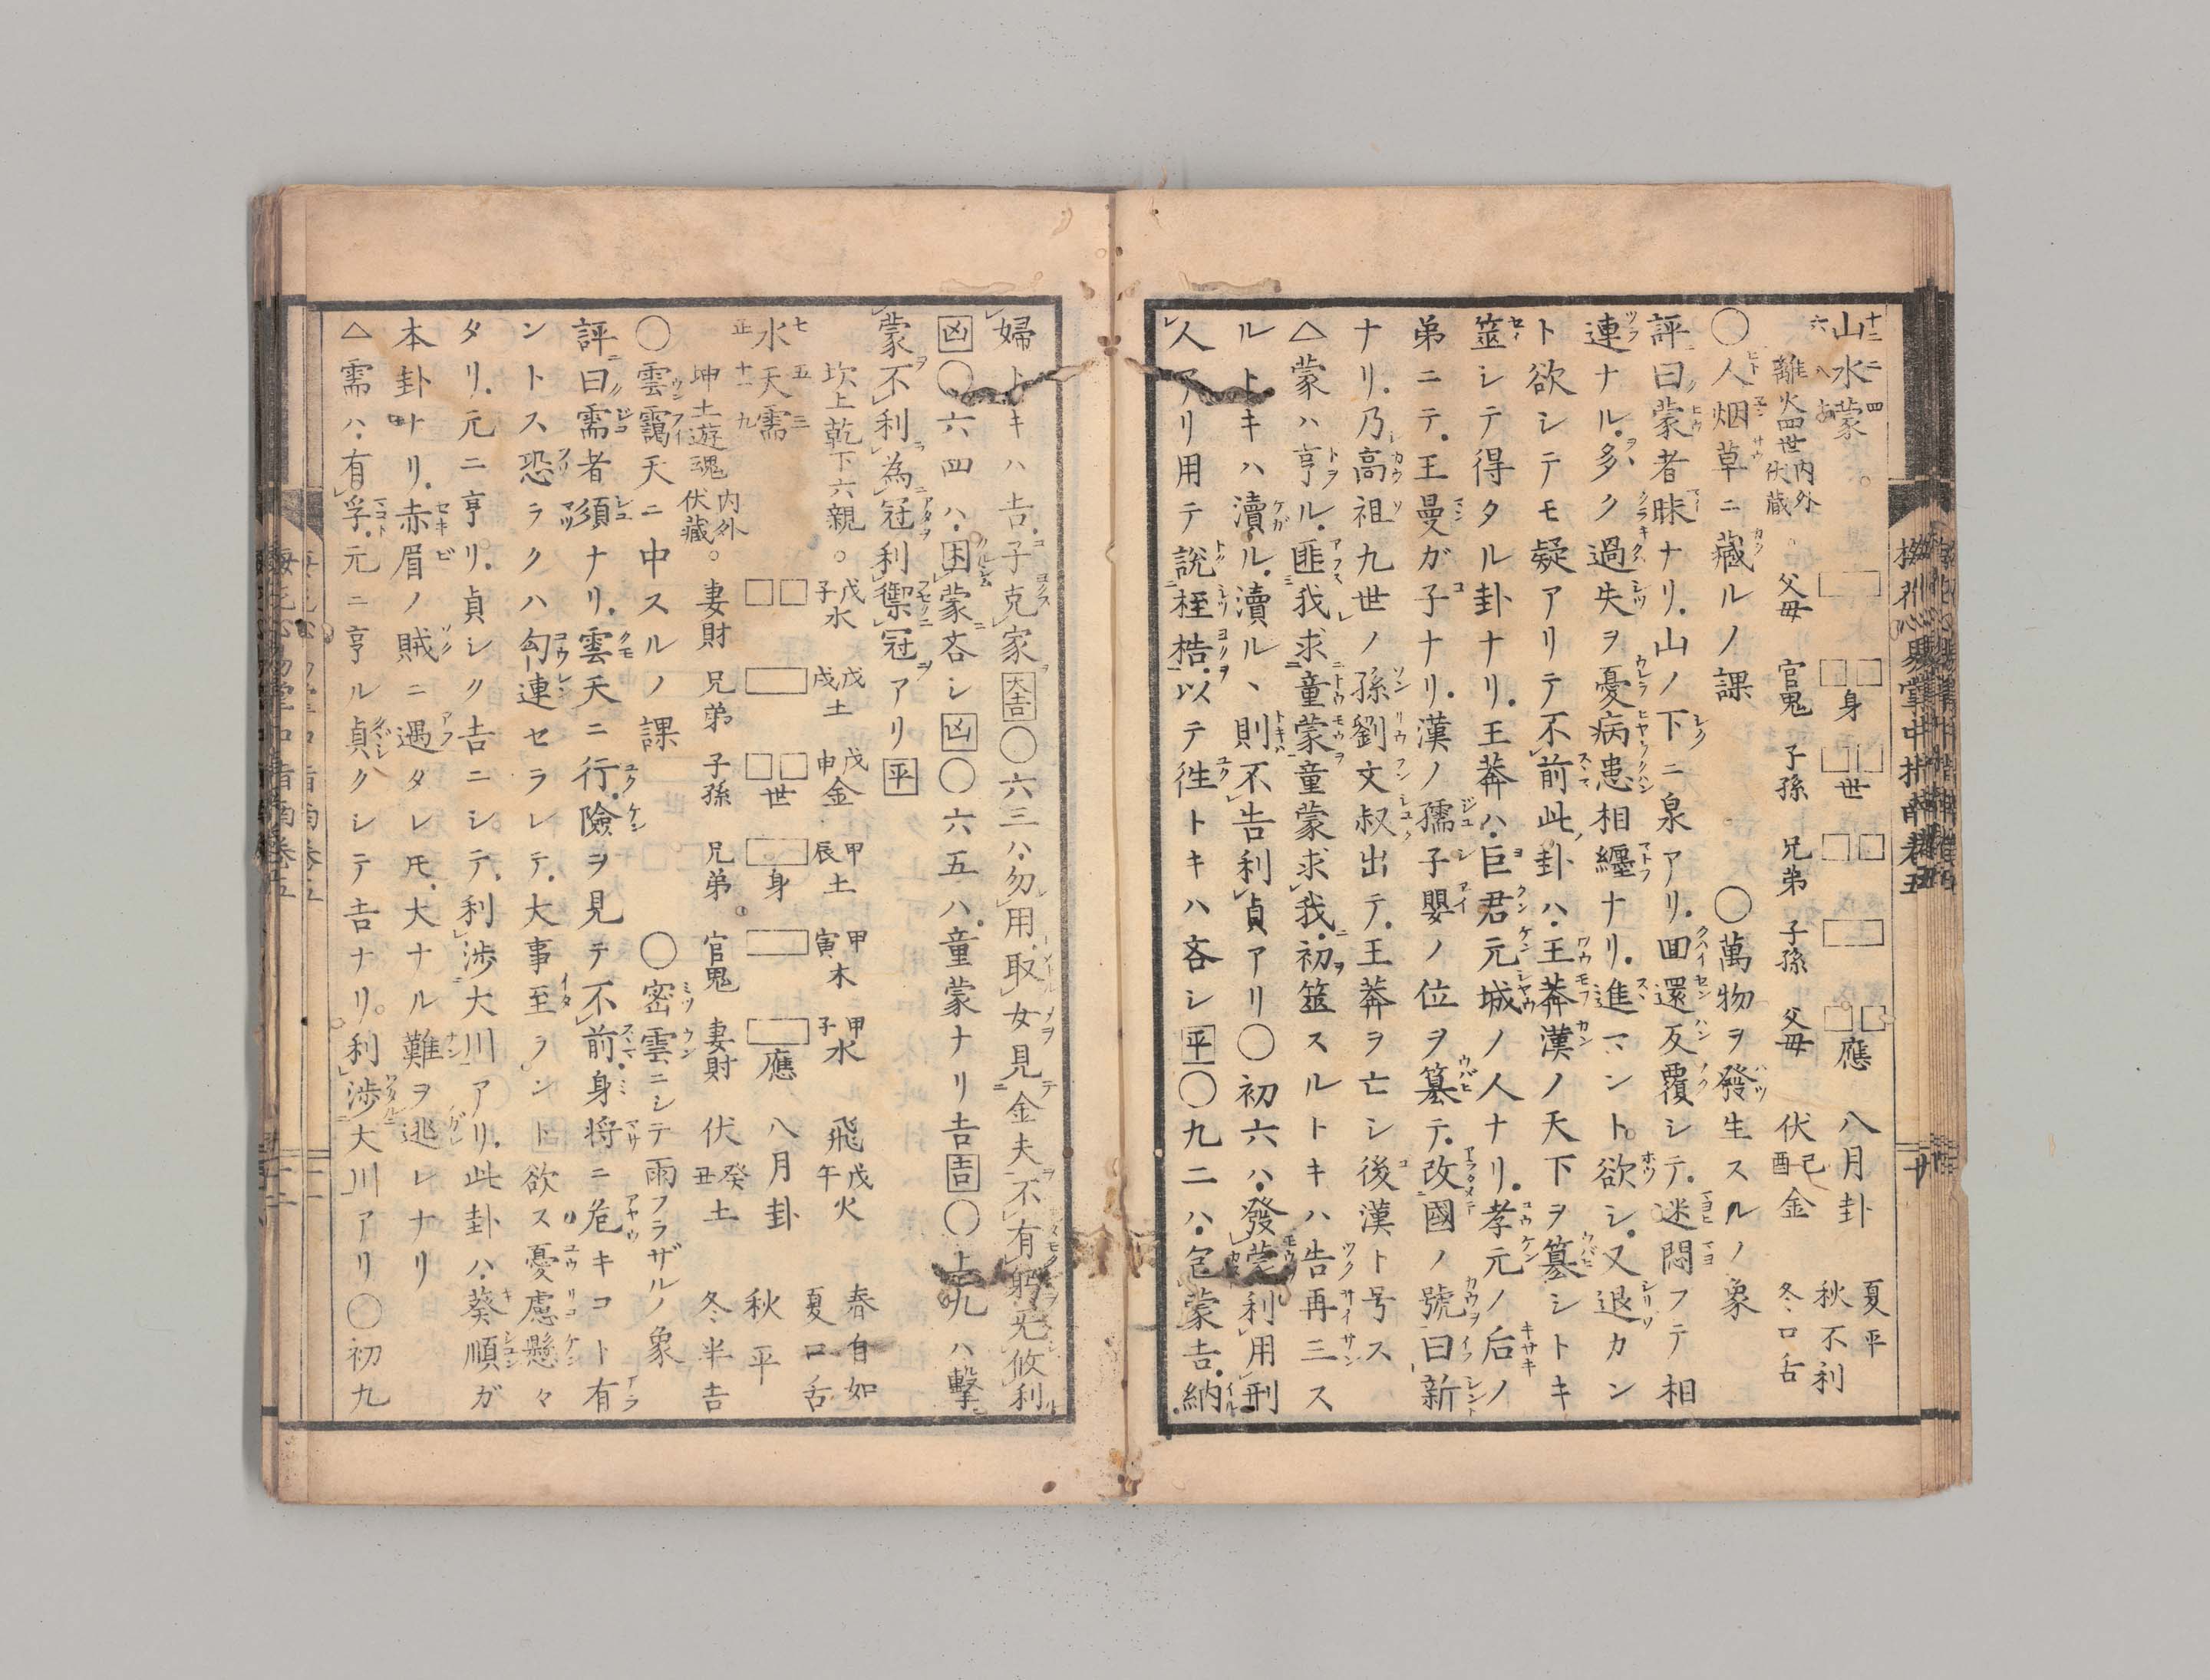 山水蒙
離火四世内外伏藏。父母 官鬼 子孫 兄弟 子孫 父母 伏己酉金
身 世 應 八月卦
夏平
秋不利
冬口舌
○人烟草ニ藏ルノ課 ○萬物ヲ發生スルノ象
評曰蒙者昧ナリ山ノ下ニ泉アリ回還反覆シテ迷悶フテ相
連ナル多ク過失ヲ憂病患相纒ナリ進マント欲シ又退カン
ト欲シテモ疑アリテ不前此卦ハ王莽漢ノ天下ヲ簒シトキ
筮シテ得タル卦ナリ王莽ハ巨君元城ノ人ナリ孝元ノ后ノ
弟ニテ王曼ガ子ナリ漢ノ孺子嬰ノ位ヲ簒テ改國ノ號曰新
ナリ乃高祖九世ノ孫劉文叔出テ王莽ヲ亡シ後漢ト号ス
△蒙ハ亨ル匪我求童蒙童蒙求我初筮スルトキハ告再三ス
ルトキハ瀆ル瀆ル、則不告利貞アリ○初六ハ發蒙利用刑
人アリ用テ説桎梏以テ往トキハ吝シ平○九二ハ包蒙吉納
婦トキハ吉子克家大吉○六三ハ勿用取女見金夫不有躬无攸利
凶○六四ハ困蒙吝シ凶○六五ハ童蒙ナリ吉吉○上九ハ撃
蒙不利為冦利禦冦アリ平
坎上乾下六親。戊子水 戊戌土 戊申金 甲辰土 甲寅木 甲子水 飛戊午火
水天需
世 身 應 八月卦
坤土遊魂内外伏藏。妻財 兄弟 子孫 兄弟 官鬼 妻財 伏癸丑土
春自如
夏口舌
秋平
冬半吉
○雲靄天ニ中スルノ課 ○密雲ニシテ雨フラザルノ象
評曰需者須ナリ雲天ニ行險ヲ見テ不前身将ニ危キコト有
ントス恐ラクハ勾連セラレテ大事至ラント欲ス憂慮懸々
タリ元ニ亨リ貞シク吉ニシテ利渉大川アリ此卦ハ葵順ガ
本卦ナリ赤眉ノ賊ニ遇タレ𪜈大ナル難ヲ逃レナリ
△需ハ有孚元ニ亨ル貞クシテ吉ナリ利渉大川アリ○初九